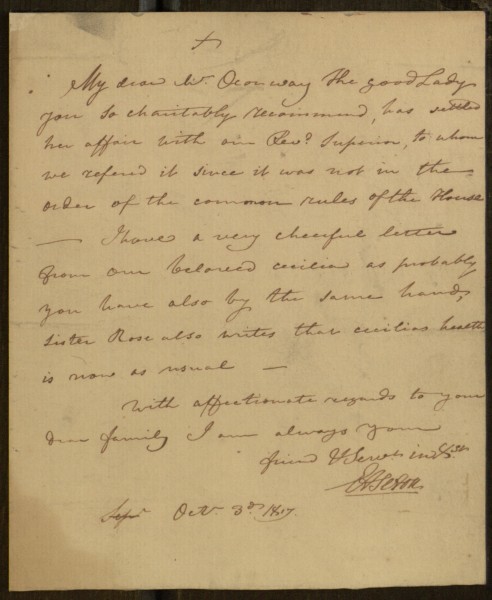 +
My dear Mr. Oconway The good Lady
you so charitably recommend, has settled
her affair with our Revd. Superior, to whom
we refered it since it was not in the
order of the common rules of the House
— I have a very cheerful letter
from our beloved cecilia as probably
you have also by the same hand,
sister Rose also writes that cecilias health
is now as usual —
With affectionate regards to your
dear family I am always your
friend & Servt in
EASeton
Octr. 3d. 1817